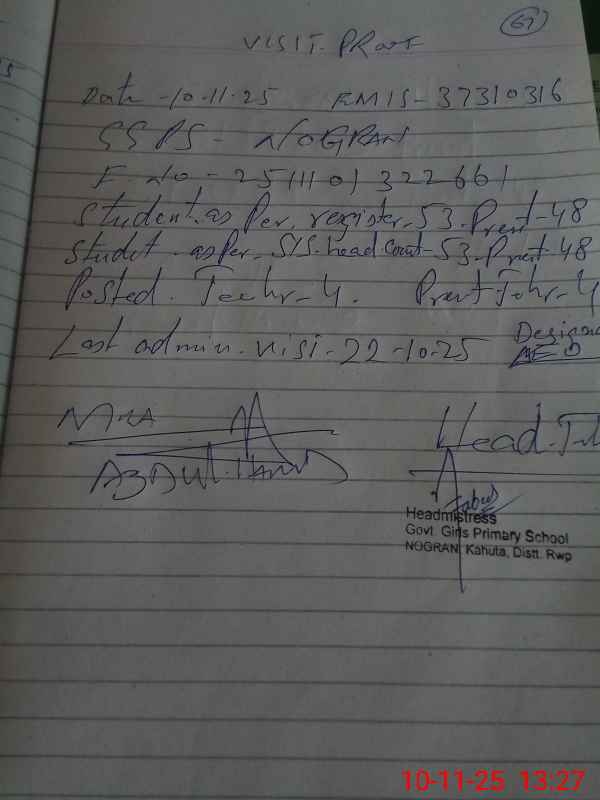 67
VISIT. PRoof
Date - 10.11.25 EMIS - 37310316
GGPS - NOGRAN
F No - 2511101322661
Student. as Per. register - 53. Prent - 48
Studet. as Per. SIS. head Count - 53. Prent - 48
Posted. Teehr - 4. Prent Tehr - 4
Last admin. visi - 22-10-25 Designa
AEO
MEA
ABDUL. HAMID
Head.
Headmistress
Govt. Girls Primary School
NOGRAN Kahuta, Distt. Rwp
10-11-25 13:27